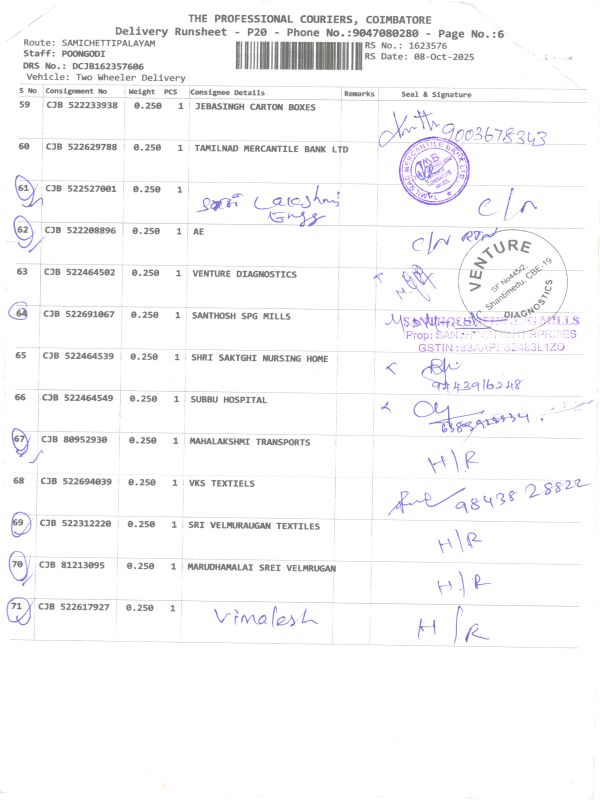 THE PROFESSIONAL COURIERS, COIMBATORE
Delivery Runsheet - P20 - Phone No.:9047080280 - Page No.:6
Route: SAMICHETTIPALAYAM RS No.: 1623576
Staff: POONGODI RS Date: 08-Oct-2025
DRS No.: DCJB162357606
Vehicle: Two Wheeler Delivery
S No Consignment No Weight PCS Consignee Details Remarks Seal & Signature
59 CJB 522233938 0.250 1 JEBASINGH CARTON BOXES 9003678343
60 CJB 522629788 0.250 1 TAMILNAD MERCANTILE BANK LTD
TAMILNAD MERCANTILE BANK LTD TMB
61 CJB 522527001 0.250 1 Lakshmi Engg C/N
62 CJB 522208896 0.250 1 AE C/N RTN
63 CJB 522464502 0.250 1 VENTURE DIAGNOSTICS
VENTURE
SF No445/2,
Shantimedu, CBE-19
DIAGNOSTICS
64 CJB 522691067 0.250 1 SANTHOSH SPG MILLS
MILLS
Prop:
GSTIN
65 CJB 522464539 0.250 1 SHRI SAKTGHI NURSING HOME 9443916248
66 CJB 522464549 0.250 1 SUBBU HOSPITAL
67 CJB 80952930 0.250 1 MAHALAKSHMI TRANSPORTS H/R
68 CJB 522694039 0.250 1 VKS TEXTIELS 98438 28822
69 CJB 522312220 0.250 1 SRI VELMURAUGAN TEXTILES H/R
70 CJB 81213095 0.250 1 MARUDHAMALAI SREI VELMRUGAN H/R
71 CJB 522617927 0.250 1 Vimalesh H/R